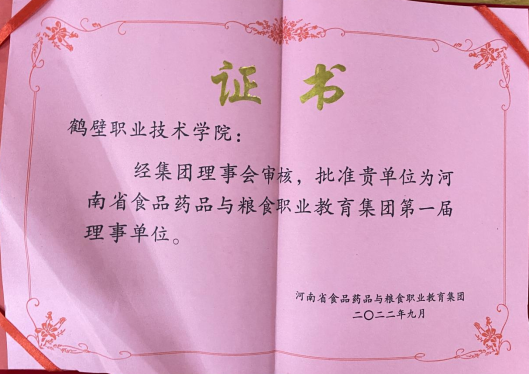 证书
鹤壁职业技术学院：
经集团理事会审核，批准贵单位为河
南省食品药品与粮食职业教育集团第一届
理事单位。
河南省食品药品与粮食职业教育集团
二〇二二年九月